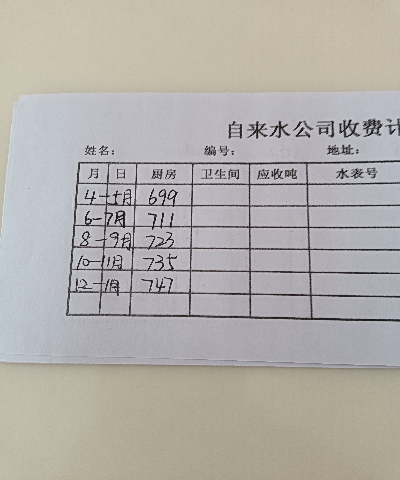 自来水公司收费计
姓名： 编号： 地址：
月 日 厨房 卫生间 应收吨 水表号
4-5月 699
6-7月 711
8-9月 723
10-11月 735
12-1月 747